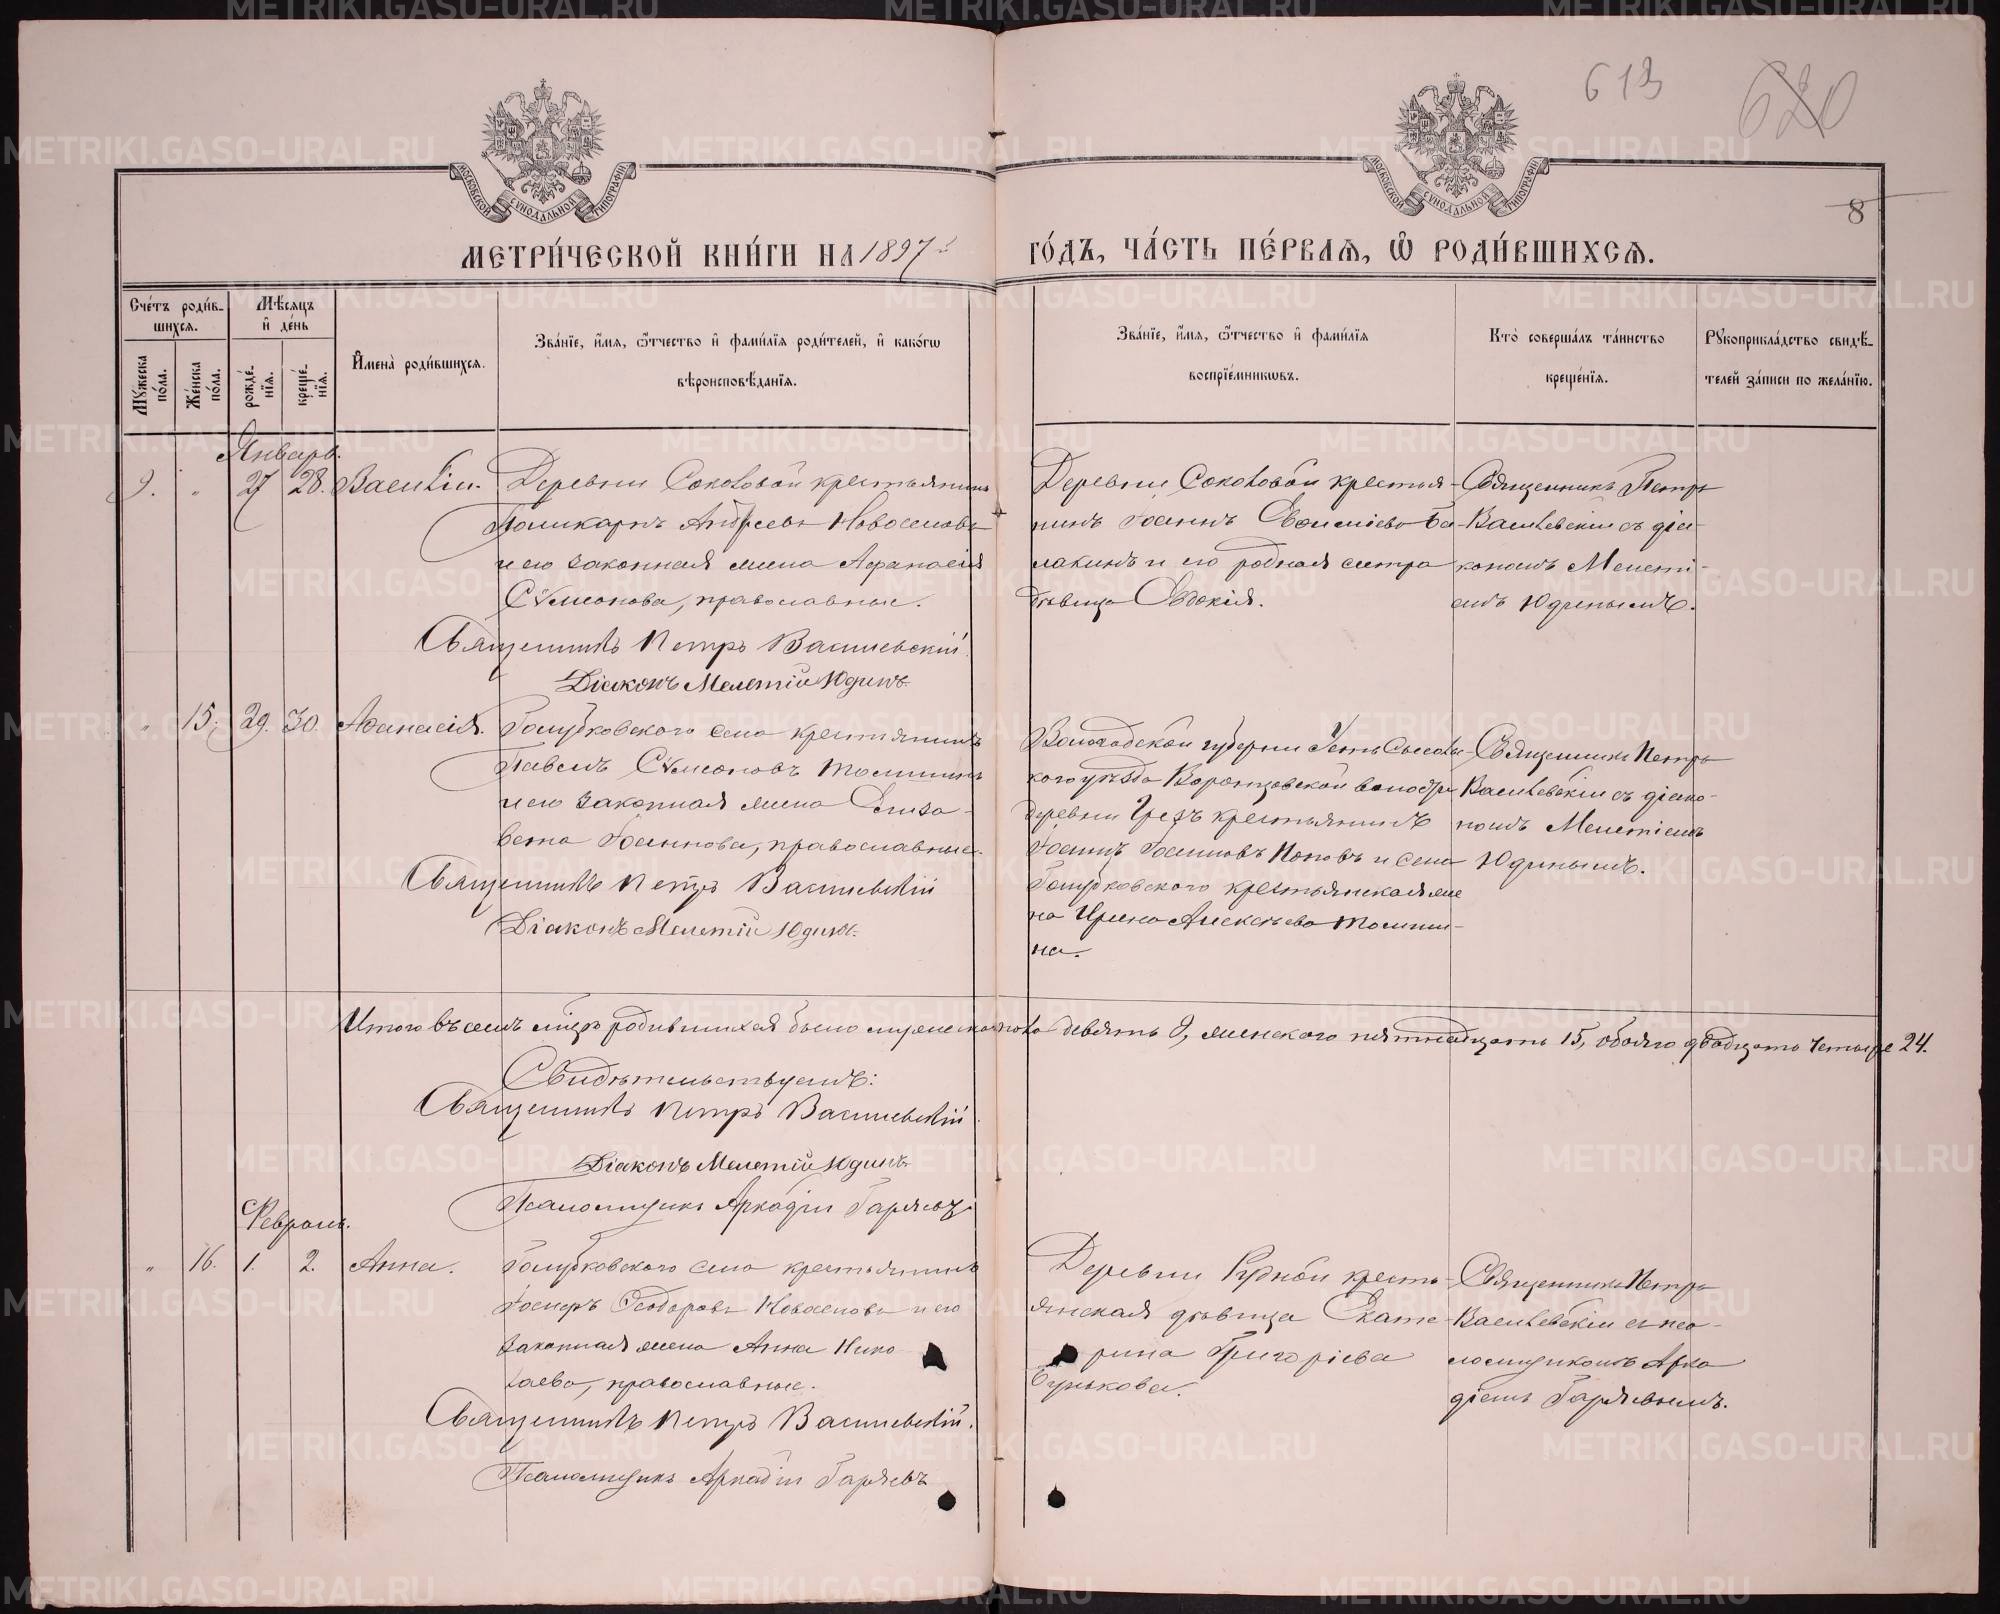 613
620
8
МОСКОВСКОЙ СУНОДАЛЬНОЙ ТИПОГРАФІИ
МОСКОВСКОЙ СУНОДАЛЬНОЙ ТИПОГРАФІИ
МЕТРИ́ЧЕСКОЙ КНИ́ГИ НА 1897 ГО́ДЪ, ЧА́СТЬ ПЕ́РВАѦ, Ѡ҆ РОДИ́ВШИХСѦ.
Сче́тъ роди́в-
шихсѧ.
Мѣ́сяцъ
и҆ де́нь
Му́жеска по́ла.
Же́нска по́ла.
рожде́-
нїѧ.
креще́-
нїѧ.
И҆мена̀ роди́вшихсѧ.
Зва́нїе, и҆́мѧ, ѻ҆́тчество и҆ фами́лїѧ роди́телей, и҆ како́гѡ
вѣроисповѣ́данїѧ.
Зва́нїе, и҆́мѧ, ѻ҆́тчество и҆ фами́лїѧ
воспрїе́мникѡвъ.
Кто̀ соверша́лъ та́инство
креще́нїѧ.
Рꙋкоприкла́дство свидѣ́-
телей за́писи по жела́нїю.
Январь.
9. " 27 28. Василій.
Деревни Соколовой крестьянинъ
Поликарпъ Андреевъ Новоселовъ
и его законная жена Афанасія
Сѵмеонова, православные.
Священникъ Петръ Василевскій
Діаконъ Мелетій Юдинъ
Деревни Соколовой крестья-
нинъ Іоаннъ
и его родная сестра
дѣвица Евдокія.
Священникъ Петръ
Василевскій съ діа-
кономъ Мелеті-
емъ Юдинымъ.
" 15. 29. 30. Афанасія.
Голубковского села крестьянинъ
Павелъ Сѵмеоновъ Томилинъ
и его законная жена Елиза-
вета Іоаннова, православные.
Священникъ Петръ Василевскій
Діаконъ Мелетій Юдинъ.
Вологодской губерніи Усть Сысоль-
кого уѣзда Воронцовской волости
деревни Грезъ крестьянинъ
Іоаннъ Іоанновъ Поповъ и села
Голубковского крестьянская же
на Ирина Алексѣева Томили-
на.
Священникъ Петръ
Василевскій съ діако-
номъ Мелетіемъ
Юдинымъ.
Итого въ семъ мѣсяцѣ родившихся было мужеска пола девять 9, женского пятнадцать 15, обоего двадцать четыре 24.
Свидѣтельствуемъ:
Священникъ Петръ Василевскій
Діаконъ Мелетій Юдинъ
Псаломщикъ Аркадій Гаряевъ
Февраль.
" 16. 1. 2. Анна.
Голубковского села крестьянинъ
Іосифъ Ѳеодоровъ Новоселовъ и его
законная жена Анна Нико
лаева, православные.
Священникъ Петръ Василевскій.
Псаломщикъ Аркадій Гаряевъ
Деревни Рудной кресть-
янская дѣвица Екате-
рина Григоріева
Бунькова.
Священникъ Петръ
Василевскій съ пса-
ломщикомъ Арка
діемъ Гаряевымъ.
METRIKI.GASO-URAL.RU